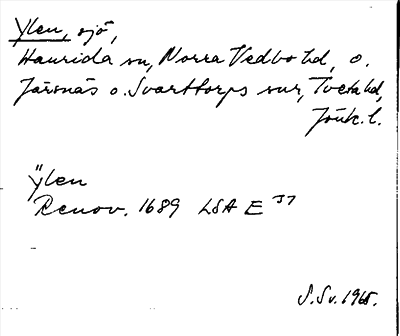 Ylen, sjö,
Haurida sn, Norra Vedbo hd, o.
Järsnäs o. Svarttorps snr, Tveta hd,
Jönk. l.
Ÿlen
Renov. 1689 LSA E 37
S. Sv. 1965.